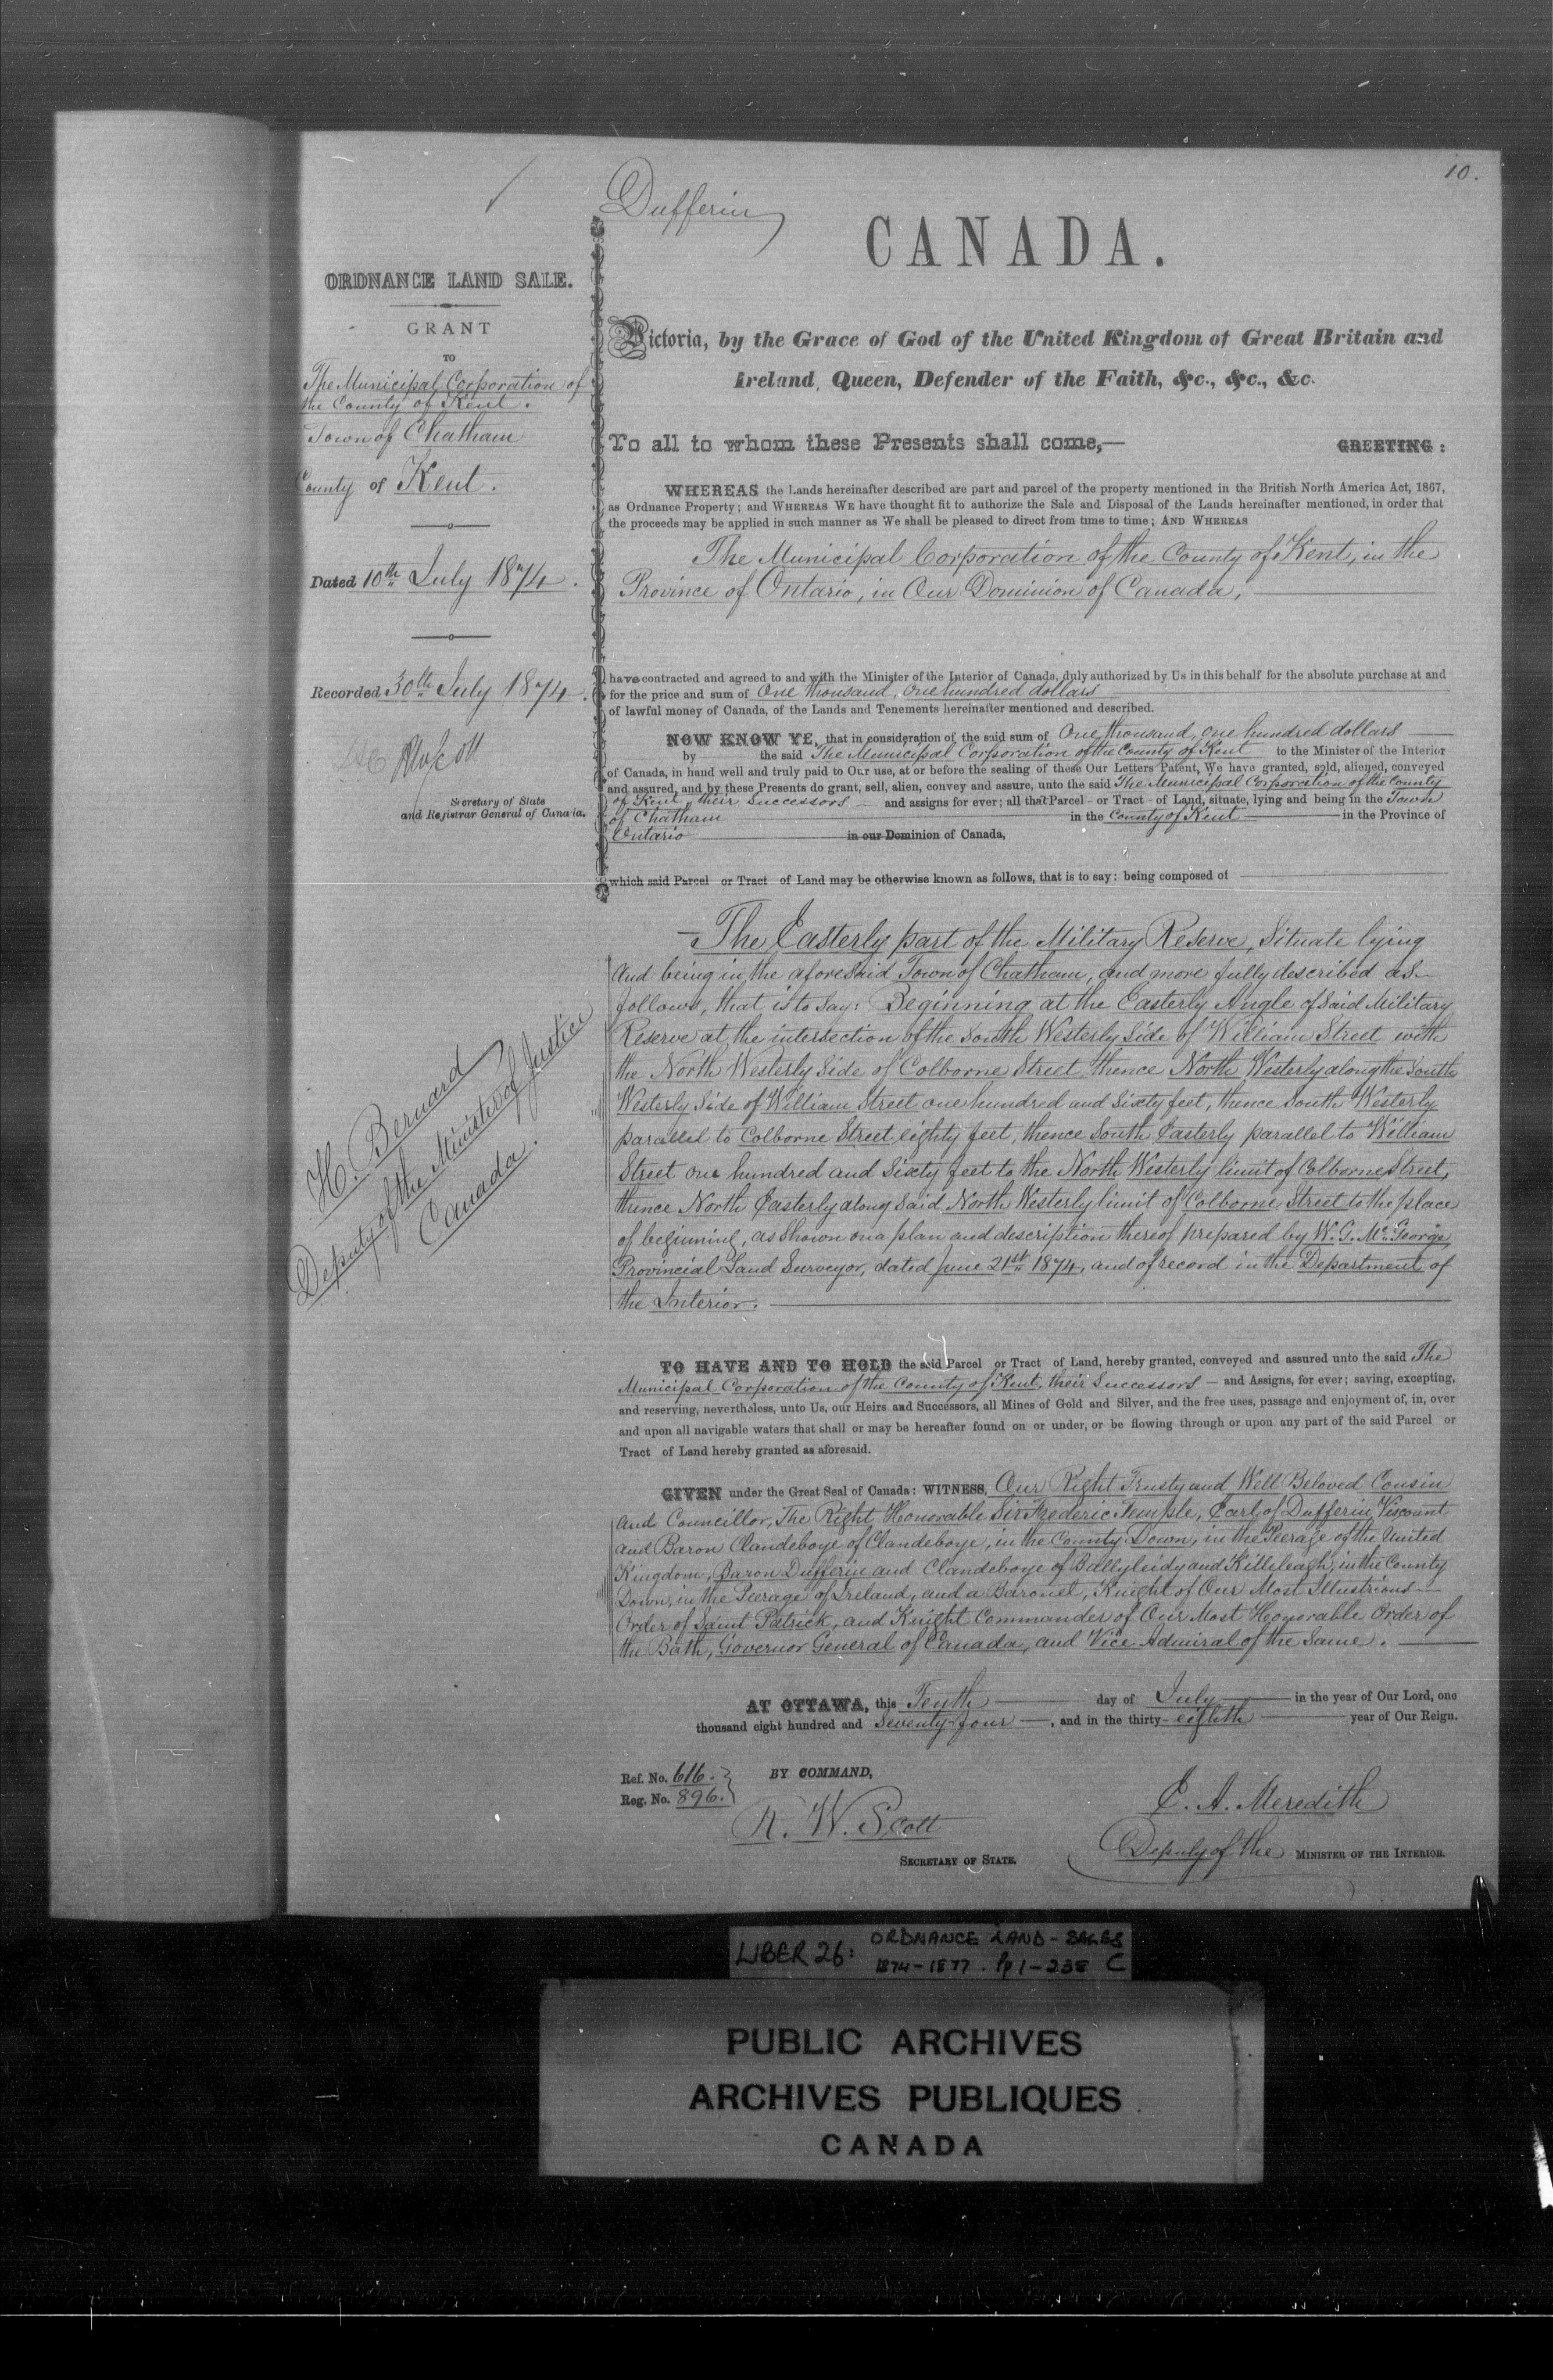 10.
Dufferin
CANADA.
ORDNANCE LAND SALE.
GRANT
TO
The Municipal Corporation of
the County of Kent.
Town of Chatham
County of Kent.
Dated 10th July 1874.
Recorded 30th July 1874.
RWScott
Secretary of State
and Registrar General of Canada.
H. Bernard
Deputy of the Minister of Justice
Canada.
Victoria, by the Grace of God of the United Kingdom of Great Britain and
Ireland, Queen, Defender of the Faith, &c., &c., &c.
To all to whom these Presents shall come,— GREETING:
WHEREAS the Lands hereinafter described are part and parcel of the property mentioned in the British North America Act, 1867,
as Ordnance Property; and WHEREAS WE have thought fit to authorize the Sale and Disposal of the Lands hereinafter mentioned, in order that
the proceeds may be applied in such manner as We shall be pleased to direct from time to time; AND WHEREAS
The Municipal Corporation of the County of Kent, in the
Province of Ontario, in Our Dominion of Canada,
have contracted and agreed to and with the Minister of the Interior of Canada, duly authorized by Us in this behalf for the absolute purchase at and
for the price and sum of One thousand, one hundred dollars
of lawful money of Canada, of the Lands and Tenements hereinafter mentioned and described.
NOW KNOW YE, that in consideration of the said sum of One thousand, one hundred dollars
by the said The Municipal Corporation of the County of Kent to the Minister of the Interior
of Canada, in hand well and truly paid to Our use, at or before the sealing of these Our Letters Patent, We have granted, sold, aliened, conveyed
and assured, and by these Presents do grant, sell, alien, convey and assure, unto the said The Municipal Corporation of the County
of Kent, their Successors — and assigns for ever; all that Parcel - or Tract - of Land, situate, lying and being in the Town
of Chatham in the County of Kent in the Province of
Ontario in our Dominion of Canada,
which said Parcel or Tract of Land may be otherwise known as follows, that is to say: being composed of
The Easterly part of the Military Reserve, Situate lying
and being in the aforesaid Town of Chatham, and more fully described as
follows, that is to say: Beginning at the Easterly Angle of said Military
Reserve at the intersection of the South Westerly Side of William Street with
the North Westerly Side of Colborne Street, thence North Westerly along the South
Westerly Side of William Street one hundred and Sixty feet, thence South Westerly
parallel to Colborne Street eighty feet, thence South Easterly parallel to William
Street one hundred and Sixty feet to the North Westerly limit of Colborne Street,
thence North Easterly along said North Westerly limit of Colborne Street to the place
of beginning, as shown on a plan and description thereof prepared by W. G. McGeorge,
Provincial Land Surveyor, dated June 21st 1874, and of record in the Department of
the Interior.
TO HAVE AND TO HOLD the said Parcel or Tract of Land, hereby granted, conveyed and assured unto the said The
Municipal Corporation of the County of Kent, their Successors — and Assigns, for ever; saving, excepting,
and reserving, nevertheless, unto Us, our Heirs and Successors, all Mines of Gold and Silver, and the free uses, passage and enjoyment of, in, over
and upon all navigable waters that shall or may be hereafter found on or under, or be flowing through or upon any part of the said Parcel or
Tract of Land hereby granted as aforesaid.
GIVEN under the Great Seal of Canada: WITNESS, Our Right Trusty and Well Beloved Cousin
and Councillor, The Right Honorable Sir Frederic Temple, Earl of Dufferin, Viscount
and Baron Clandeboye of Clandeboye, in the County Down, in the Peerage of the United
Kingdom, Baron Dufferin and Clandeboye of Ballyleidy and Killeleagh, in the County
Down, in the Peerage of Ireland, and a Baronet, Knight of Our Most Illustrious
Order of Saint Patrick, and Knight Commander of Our Most Honorable Order of
the Bath, Governor General of Canada, and Vice Admiral of the Same.
AT OTTAWA, this Tenth day of July in the year of Our Lord, one
thousand eight hundred and Seventy-four —, and in the thirty-eighth year of Our Reign.
Ref. No. 616.
Reg. No. 896.
BY COMMAND,
R. W. Scott
SECRETARY OF STATE.
E. A. Meredith
Deputy of the MINISTER OF THE INTERIOR.
LIBER 26: ORDNANCE LAND-SALES
1874-1877. Pp 1-238 C
PUBLIC ARCHIVES
ARCHIVES PUBLIQUES
CANADA